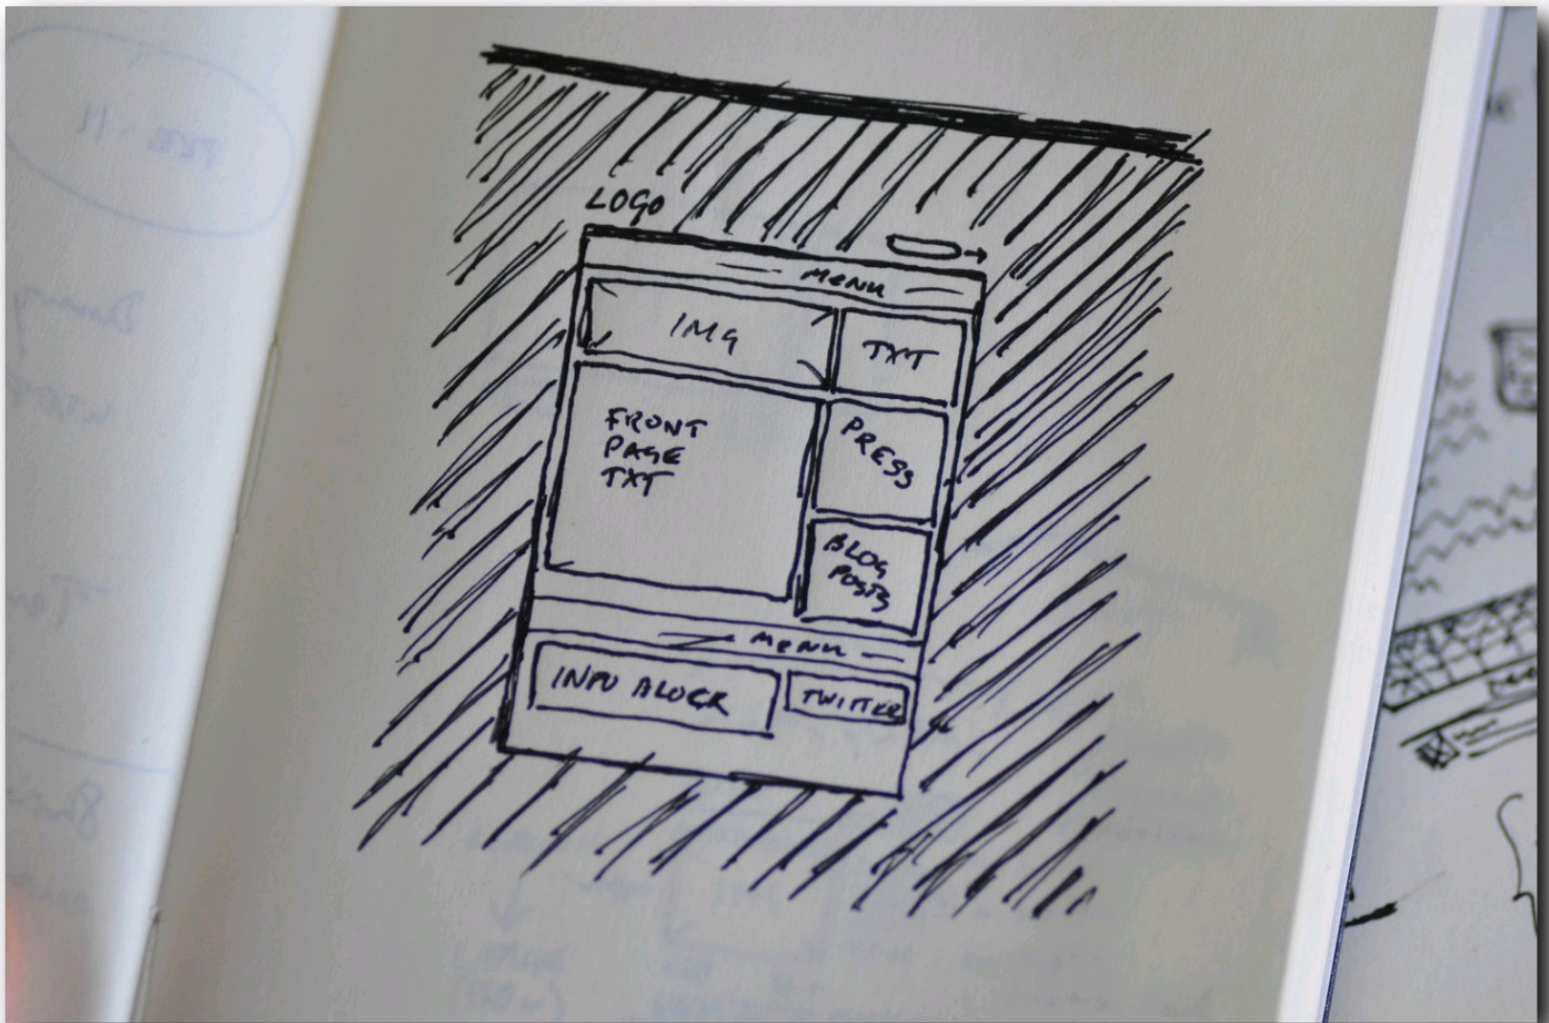 LOGO
MENU
IMG
TXT
FRONT
PAGE
TXT
PRESS
BLOG
POSTS
MENU
INFO BLOCK
TWITTER